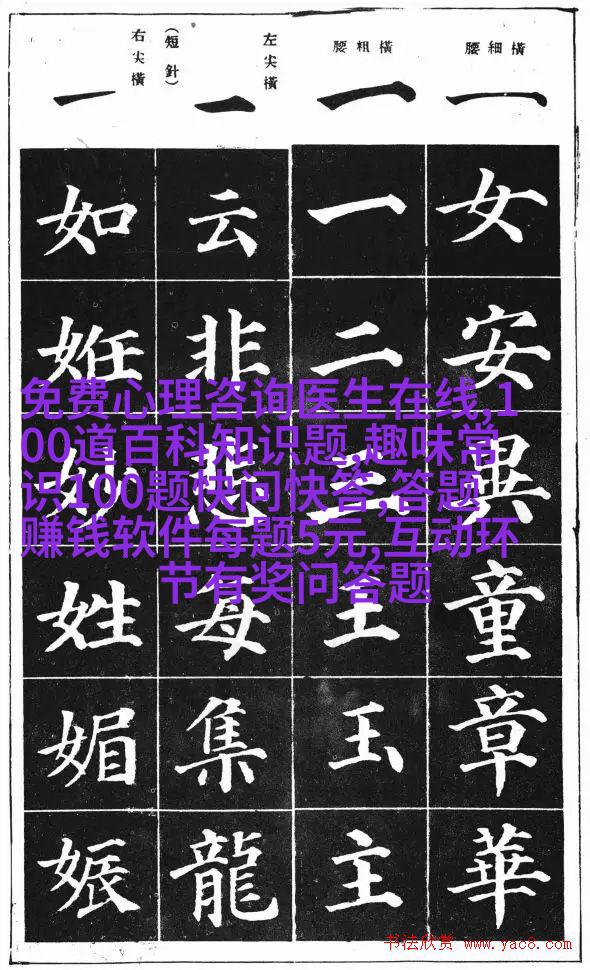 橫細腰
一
女
安
異
童
章
華
橫粗腰
一
一
二
三
王
玉
主
左尖橫
(短針)
一
云
非
悲
每
集
龍
右尖橫
一
如
姙
妙
姓
媚
娠
免费心理咨询医生在线,1
00道百科知识题,趣味常
识100题快问快答,答题
赚钱软件每题5元,互动环
节有奖问答题
书法欣赏 www.yac8.com